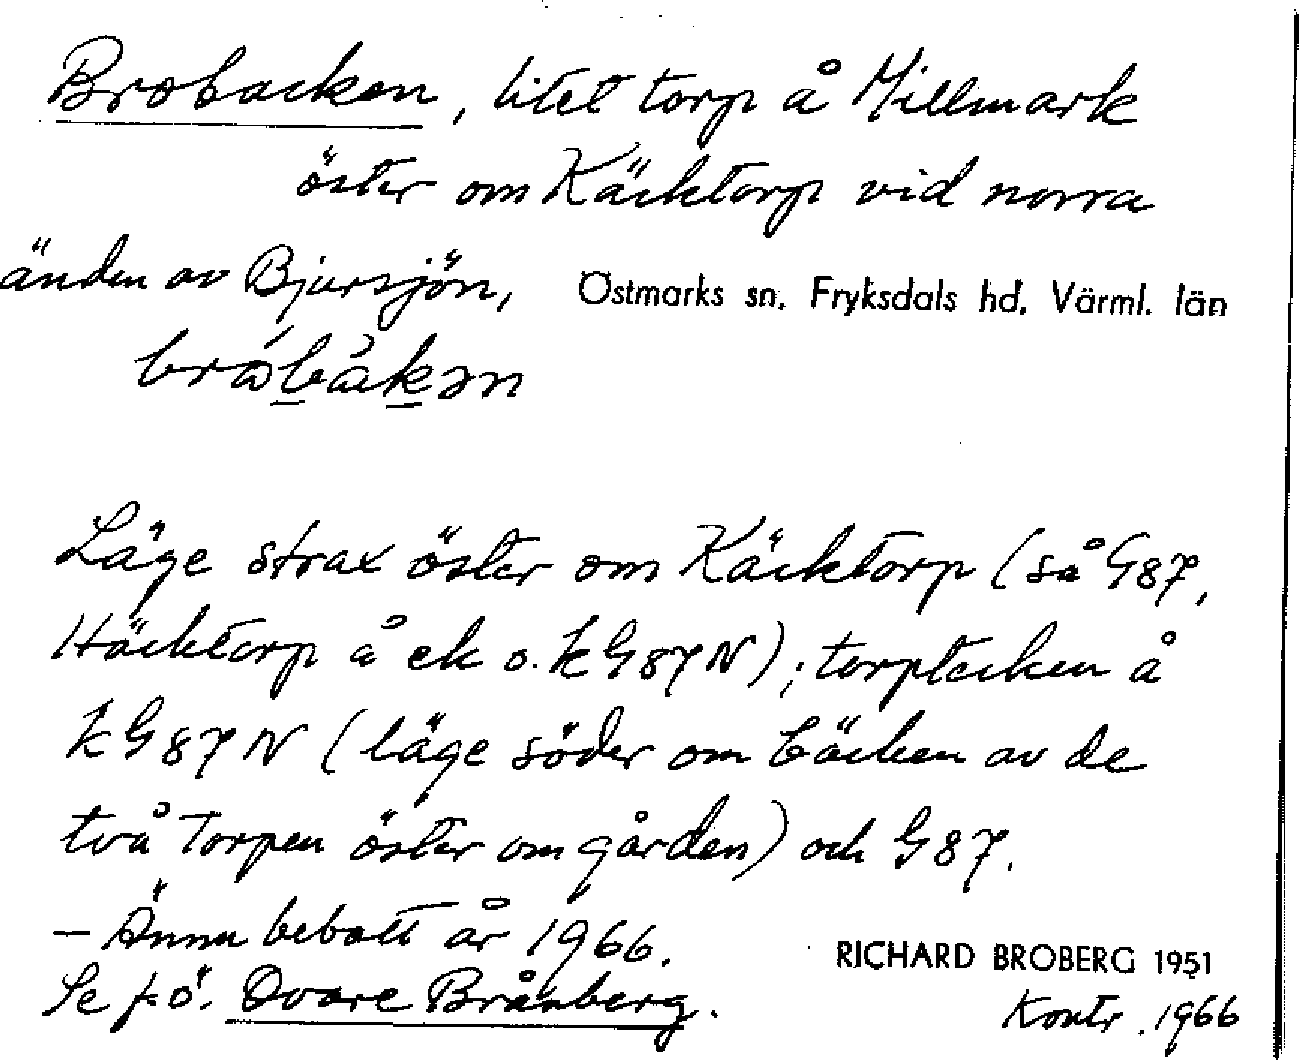 Brobacken, litet torp å Millmark
öster om Käcktorp vid norra
änden av Bjursjön, Östmarks sn. Fryksdals hd. Värml. län
Läge strax öster om Käcktorp (så G87,
Häcktorp å ek o. k G87N); torptecken å
k G87N (läge söder om bäcken av de
två torpen öster om gården) och G87.
– Ännu bebott år 1966.
RICHARD BROBERG 1951
Se f.ö. Ovare Brånberg.
Kontr. 1966